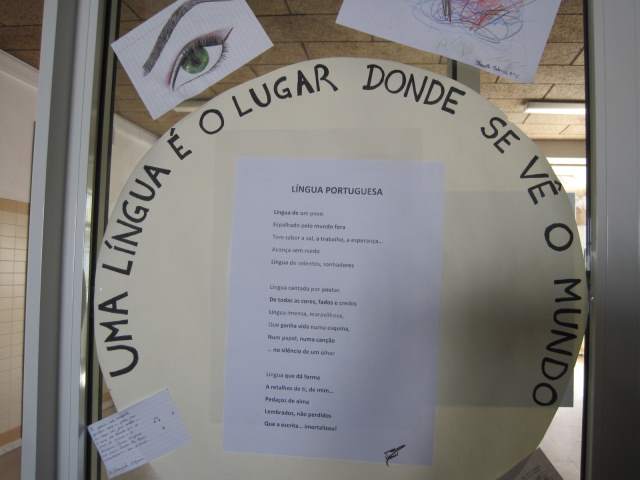 UMA LÍNGUA É O LUGAR DONDE SE VÊ O MUNDO
LÍNGUA PORTUGUESA
Língua de um povo
Espalhado pelo mundo fora
Tem sabor a sal, a trabalho, a esperança...
Avança sem medo
Língua de valentes, sonhadores
Língua cantada por poetas
De todas as cores, fados e credos
Língua imensa, maravilhosa,
Que ganha vida numa esquina,
Num papel, numa canção
... no silêncio de um olhar
Língua que dá forma
A retalhos de ti, de mim...
Pedaços de alma
Lembrados, não perdidos
Que a escrita... imortalizou!